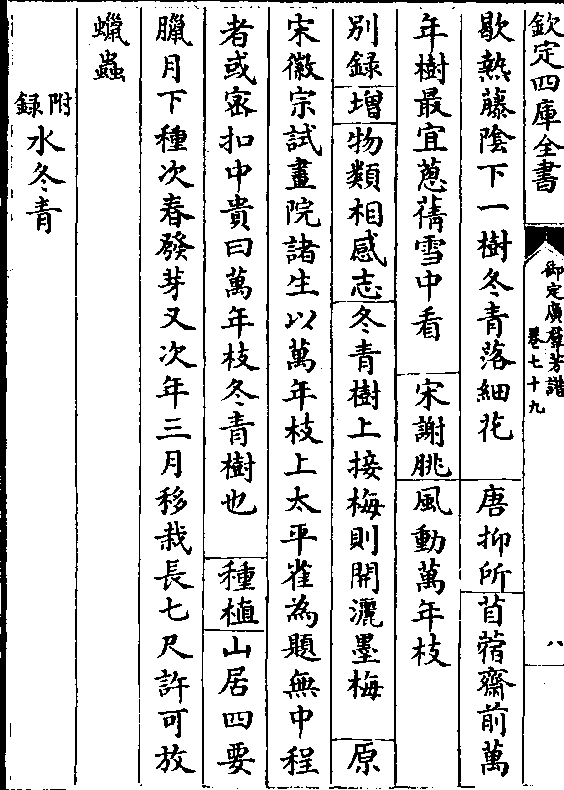 欽定四庫全書
御定廣羣芳譜
卷七十九
八
歇熱藤陰下一樹冬青落細花 唐抑所 苜蓿齋前萬
年樹最宜蔥蒨雪中看 宋謝朓 風動萬年枝
別録 增 物類相感志 冬青樹上接梅則開灑墨梅 原
宋徽宗試畫院諸生以萬年枝上太平雀為題無中程
者或宻扣中貴曰萬年枝冬青樹也 種植 山居四要
臘月下種次春發芽又次年三月移栽長七尺許可放
蠟蟲
附録 水冬青